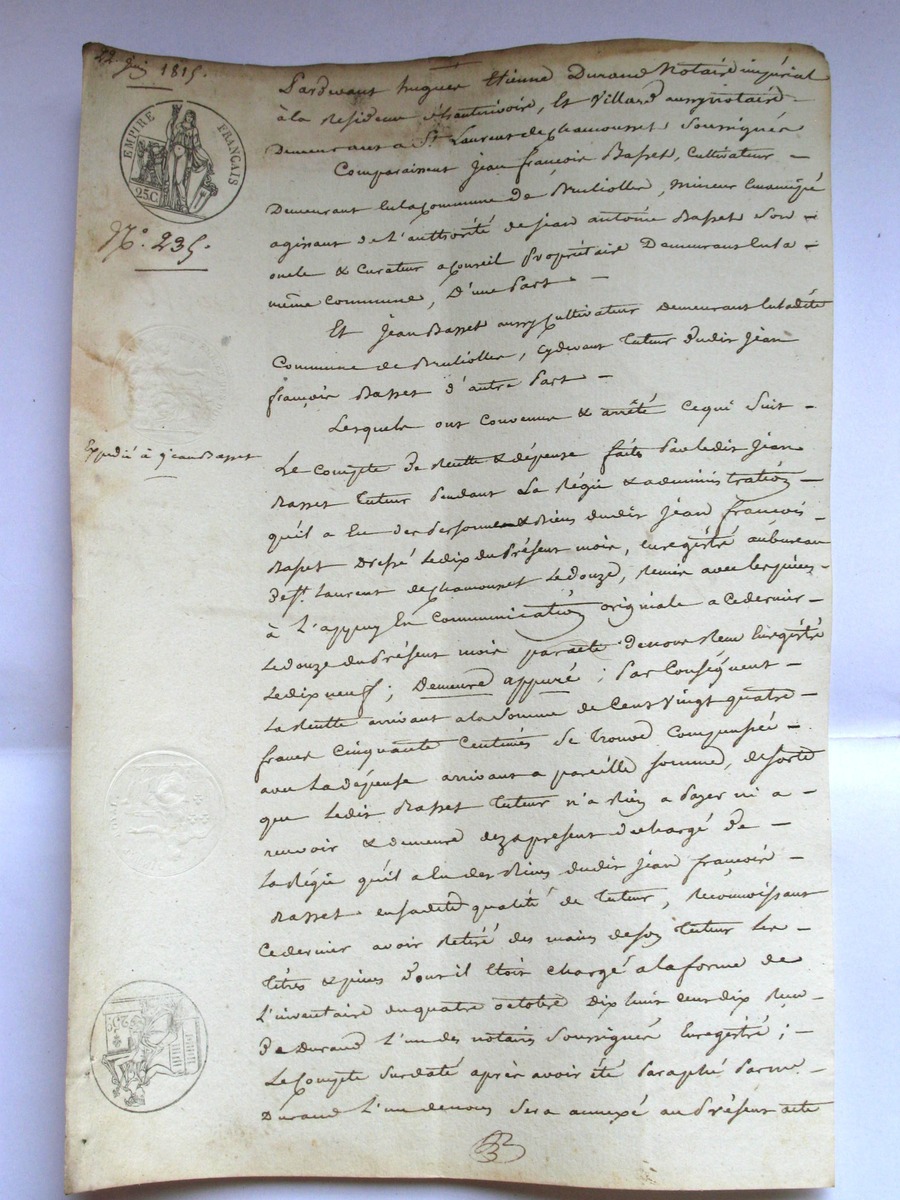 22 juin 1815.
EMPIRE FRANÇAIS
25C
N.° 235.
Expédié à jean Basset
Pardevant hugues Etienne Durand Notaire impérial
à la Résidence d'hauterivoire, Et Villard aussy notaire
Demeurant a St. Laurent de chamousset Soussignés
Comparaissent Jean françois Basset, Cultivateur
Demeurant En la Commune de Brulliolles, mineur Emancipé
agissant de L'authorité de jean antoine Basset Son
oncle & curateur a Conseil Propriétaire Demeurant En la
même Commune, D'une Part
Et Jean Basset aussy Cultivateur Demeurant En ladite
Commune de Brulliolles, Cydevant Tuteur dudit Jean
françois Basset d'autre Part
Lesquels ont Convenus & arrêté Ce qui Suit
Le Compte de Recette & dépense faits Par ledit Jean
Basset Tuteur Pendant La Régie & administration
qu'il a Eu des Personne & Biens dudit Jean françois
Basset Dressé Le dix du Présent mois, Enregistré au bureau
de St. Laurent de chamousset Le douze, Remis avec les pièces
à L'appuy En Communication originale a Ce dernier
Le douze du Présent mois par acte de nous Reçu Enregistré
Le dix neuf; Demeure appuré; Par Conséquent
La Recette arrivant a la Somme de Cent Vingt quatre
francs Cinquante Centimes Se Trouve Compensée
avec La dépense arrivant a pareille Somme, de Sorte
que Ledit Basset Tuteur n'a Rien a Payer ni a
recevoir & demeure dez a present décharge de
La Régie qu'il a Eu des Biens dudit Jean françois
Basset en sadite qualité de Tuteur, Reconnoissant
Ce dernier avoir Retiré des mains de Son Tuteur Les
Titres & pieces Dont il Etoit chargé a la forme de
L'inventaire du quatre octobre Dix huit cent dix Reçu
De Durand L'un des notaires Soussignés Enregistré;
Le Compte Sur daté après avoir été Paraphé Par me
Durand L'un de nous Sera annexé au Présent acte